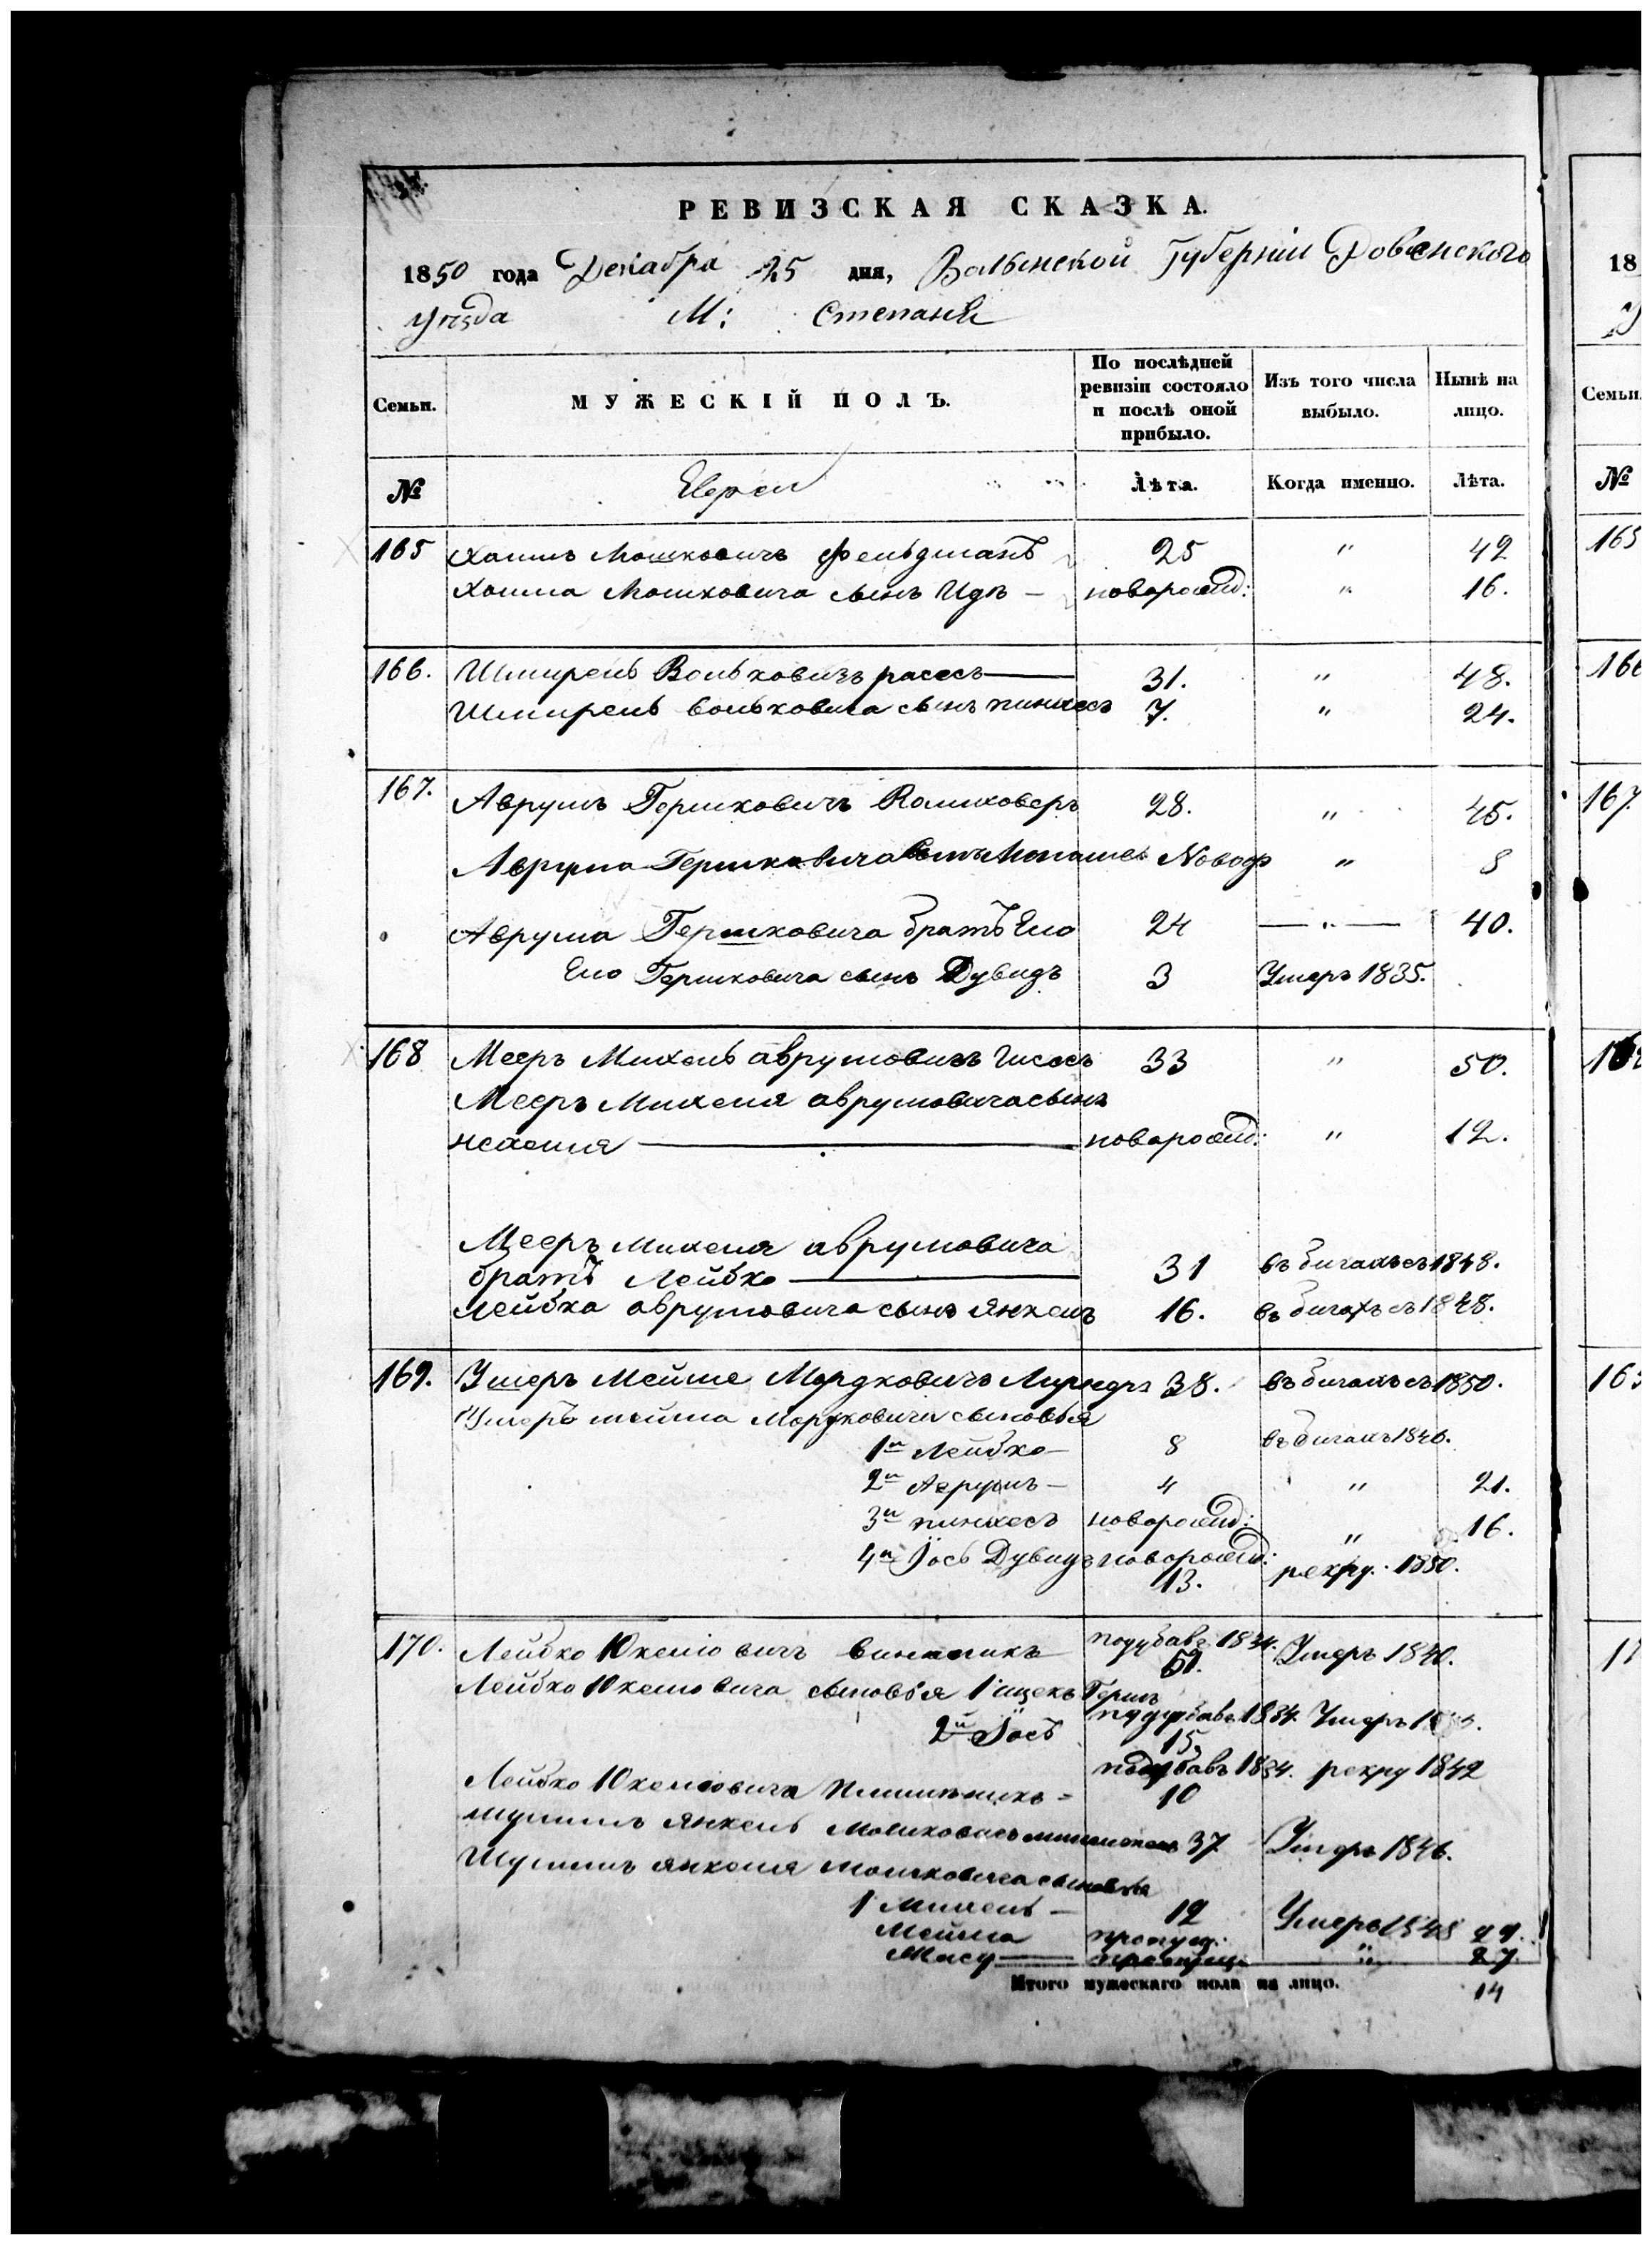 РЕВИЗСКАЯ СКАЗКА.
1850 года Декабря 25 дня, Волынской Губерніи Ровенскаго
уѣзда М: Степаня
Семьи. МУЖЕСКІЙ ПОЛЪ. По послѣдней ревизіи состояло и послѣ оной прибыло. Изъ того числа выбыло. Нынѣ на лицо.
№ Евреи Лѣта. Когда именно. Лѣта.
165 Хаимъ Мошковичъ Фельдманъ 25 " 42
Хаима Мошковича сынъ Идъ — новорожд: " 16.
166. Шмирель Вольковичъ расесъ 31. " 48.
Шмирель вольковича сынъ пинхесъ 7. " 24.
167. Аврумъ Гершковичъ 28. " 45.
Аврума Гершковича сынъ Новор " 8
Аврума Гершковича братъ Ело 24 — " — 40.
Ело Гершковича сынъ Дувидъ 3 Умеръ 1835.
168 Мееръ Михель аврумовичъ 33 " 50.
Мееръ Михеля аврумовича сынъ
нехемя новорожд: " 12.
Мееръ михеля аврумовича
братъ Лейбко 31 въ бигахъ съ 1848.
Лейбка аврумовича сынъ янкель 16. въ бигахъ съ 1848.
169. Умеръ Мейше Мордковичъ 38. въ бигахъ съ 1850.
Умеръ мейша Мордковича сыновья
1й Лейбко — 8 въ бигахъ 1846.
2й Аврумъ — 4 " 21.
3й пинхесъ новорожд: " 16.
4й Іось Дувидъ новорожд: 13. рекру. 1850.
170. Лейбко Юкелювичъ 1834. 51. Умеръ 1840.
Лейбко Юкелювича сыновья 1 ицекъ Гершъ 1834. 15. Умеръ
2й Іось 1834. 10 рекру 1842
Лейбко Юкелювича
янкель 37 Умеръ 1846.
янкеля мошковича сыновья
1 Михель — 12 Умеръ 1848
Мейша пропущ: 29.
пропущ: " 27.
Итого мужескаго пола на лицо. 14
18
Семьи.
№
165
166
167.